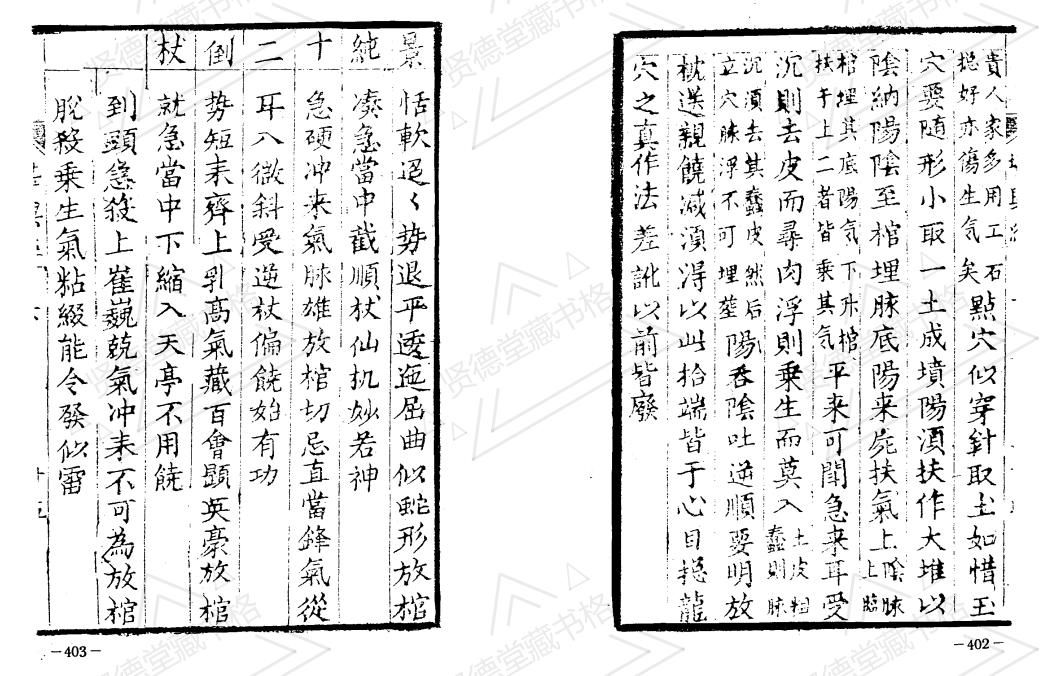 貴人家多用工石
穏好亦傷生气矣
點穴似穿針取土如惜玉
穴要随形小取一土成墳陽湏扶作大堆以
陰納陽陰至棺埋脉底陽来屍扶氣上
陰脉
上臨
棺埋其底陽気下升棺
扶于上二者皆乘其气
平来可聞急来耳受
沉則去皮而尋肉浮則乗生而莫入
土皮粗
蠢則脉
沉湏去其蠢皮然后
立穴脉浮不可埋塟
陽吞陰吐逆順要明放
枕送親饒减湏淂以此拾端皆于心目揔龍
穴之真作法差訛以前皆廢
－402－
景純十二倒杖
恬軟迢〱勢退平逶迤屈曲似蛇形放棺
凑急當中截順杖仙机妙若神
急硬冲来氣脉雄放棺切忌直當鋒氣從
耳入微斜受逆杖偏饒始有功
势短来齊上乳髙氣藏百會顕英豪放棺
就急當中下縮入天亭不用饒
到頭急殺上崔巍兢氣冲来不可為放棺
脫殺乗生氣粘綴能令發似雷
十五
－403－
贤德堂藏书格